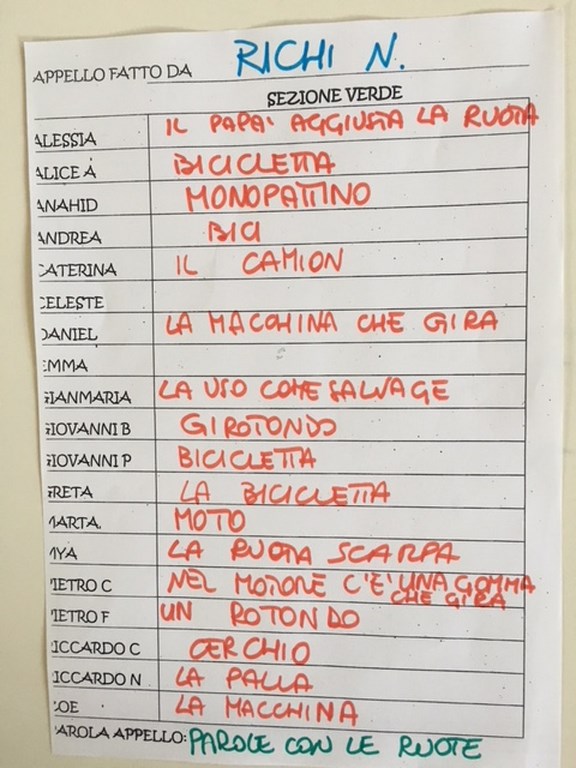 APPELLO FATTO DA RICHI N.
SEZIONE VERDE
ALESSIA IL PAPA' AGGIUSTA LA RUOTA
ALICE A BICICLETTA
ANAHID MONOPATTINO
ANDREA BICI
CATERINA IL CAMION
CELESTE
DANIEL LA MACCHINA CHE GIRA
EMMA
GIANMARIA LA USO COME SALVAGE
GIOVANNI B GIROTONDO
GIOVANNI P BICICLETTA
GRETA LA BICICLETTA
MARTA MOTO
MYA LA RUOTA SCARPA
PIETRO C NEL MOTORE C'E' UNA GOMMA
CHE GIRA
PIETRO F UN ROTONDO
RICCARDO C CERCHIO
RICCARDO N LA PALLA
ZOE LA MACCHINA
PAROLA APPELLO: PAROLE CON LE RUOTE